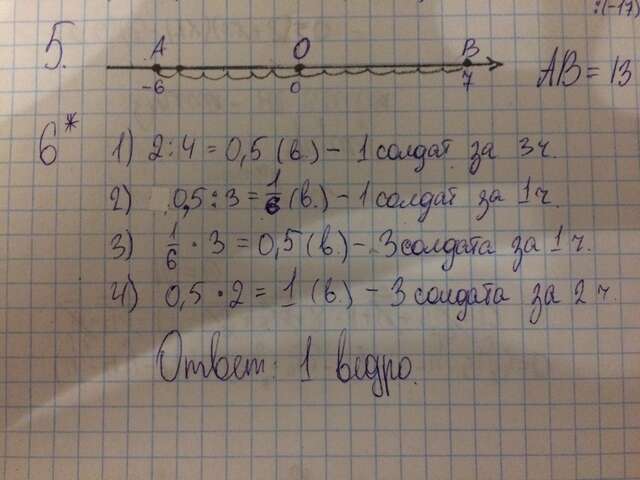 :(-17)
5.
A O B AB = 13
-6 0 7
6*
1) 2:4 = 0,5 (в.) - 1 солдат за 3ч.
2) 0,5:3 = 1/6 (в.) - 1 солдат за 1ч.
3) 1/6 · 3 = 0,5 (в.) - 3 солдата за 1ч.
4) 0,5 · 2 = 1 (в.) - 3 солдата за 2ч.
Ответ: 1 ведро.